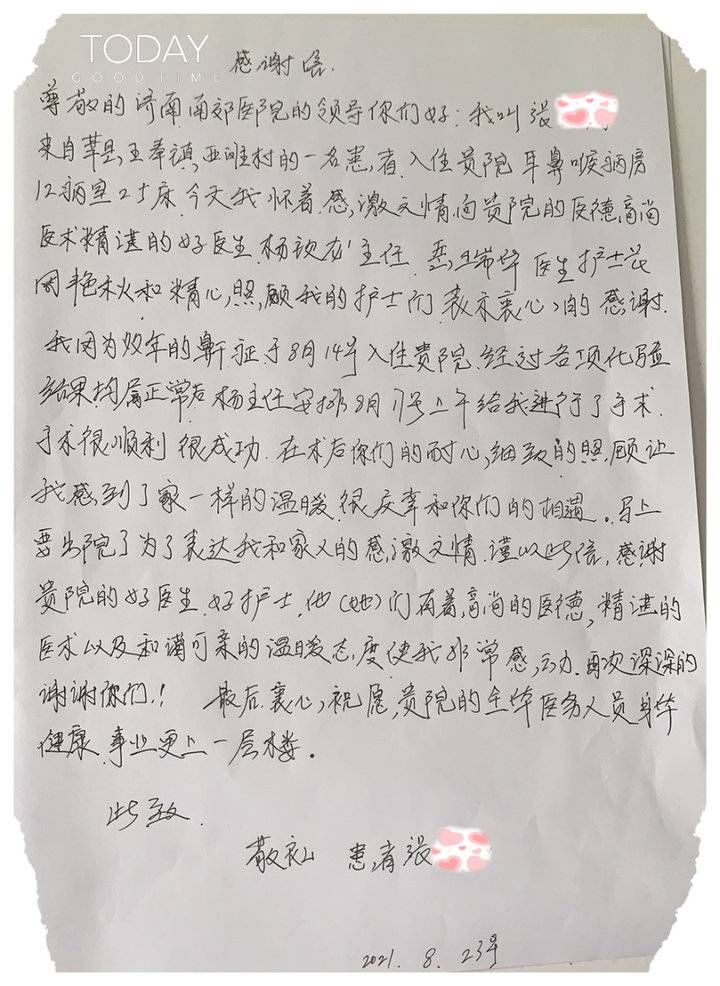 TODAY
GOOD TIME
感谢信.
尊敬的济南南郊医院的领导你们好:我叫张
来自莘县,王奉镇,亚滩村的一名患者.入住贵院耳鼻喉病房
12病室25床.今天我怀着感激之情向贵院的医德高尚
医术精湛的好医生.杨钦龙主任.聂瑞华医生护士长
和精心照顾我的护士们表示衷心的感谢.
我因为数年的鼻炎于8月14号入住贵院.经过各项化验
结果均属正常后杨主任安排8月17号上午给我进行了手术.
手术很顺利很成功.在术后你们的耐心,细致的照顾让
我感到了家一样的温暖.很庆幸和你们的相遇。马上
要出院了为了表达我和家人的感激之情.谨以此信,感谢
贵院的好医生.好护士.他(她)们有着高尚的医德,精湛的
医术以及和蔼可亲的温暖态度使我非常感动.再次深深的
谢谢你们!最后衷心祝愿,贵院的全体医务人员身体
健康.事业更上一层楼。
此致.
敬礼 患者张
2021.8.23号